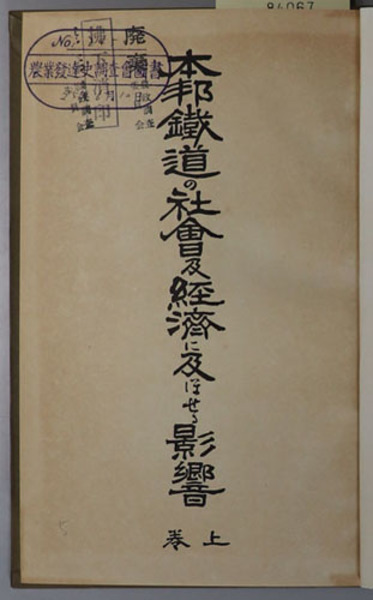 84067
廃
No.
農業發達史調査會圖書
本邦鐵道の社會及經濟に及ほせる影響
上卷